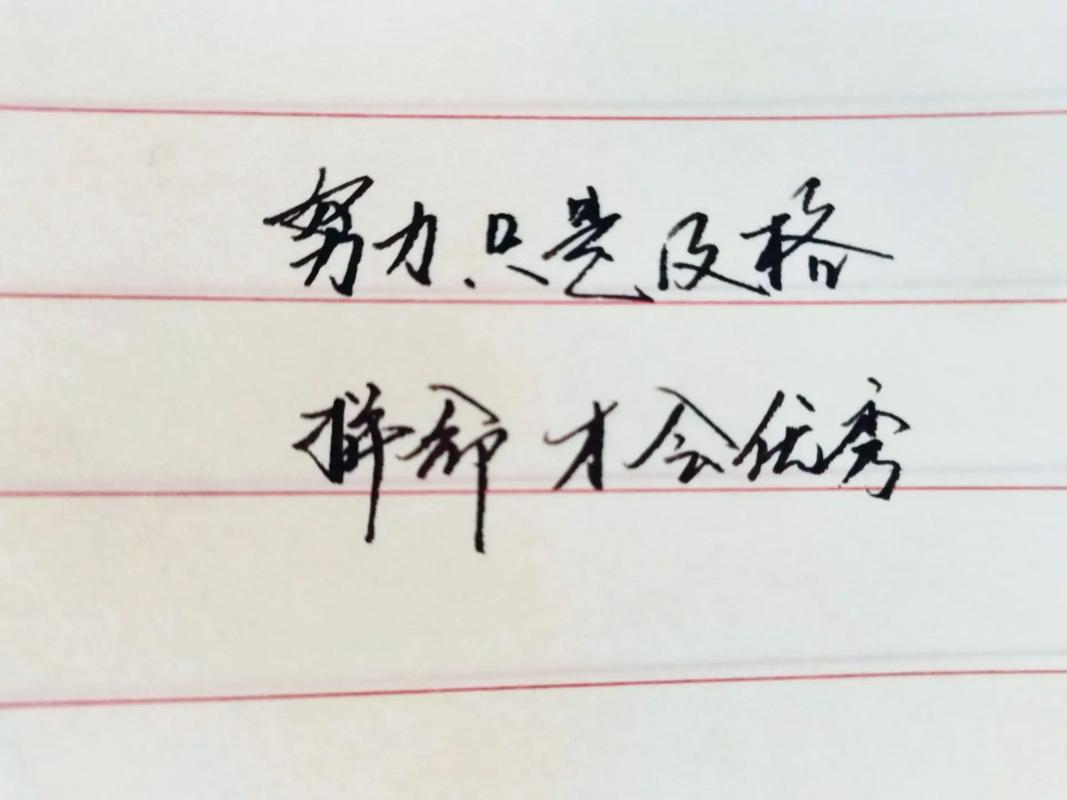 努力只是及格
拼命才会优秀